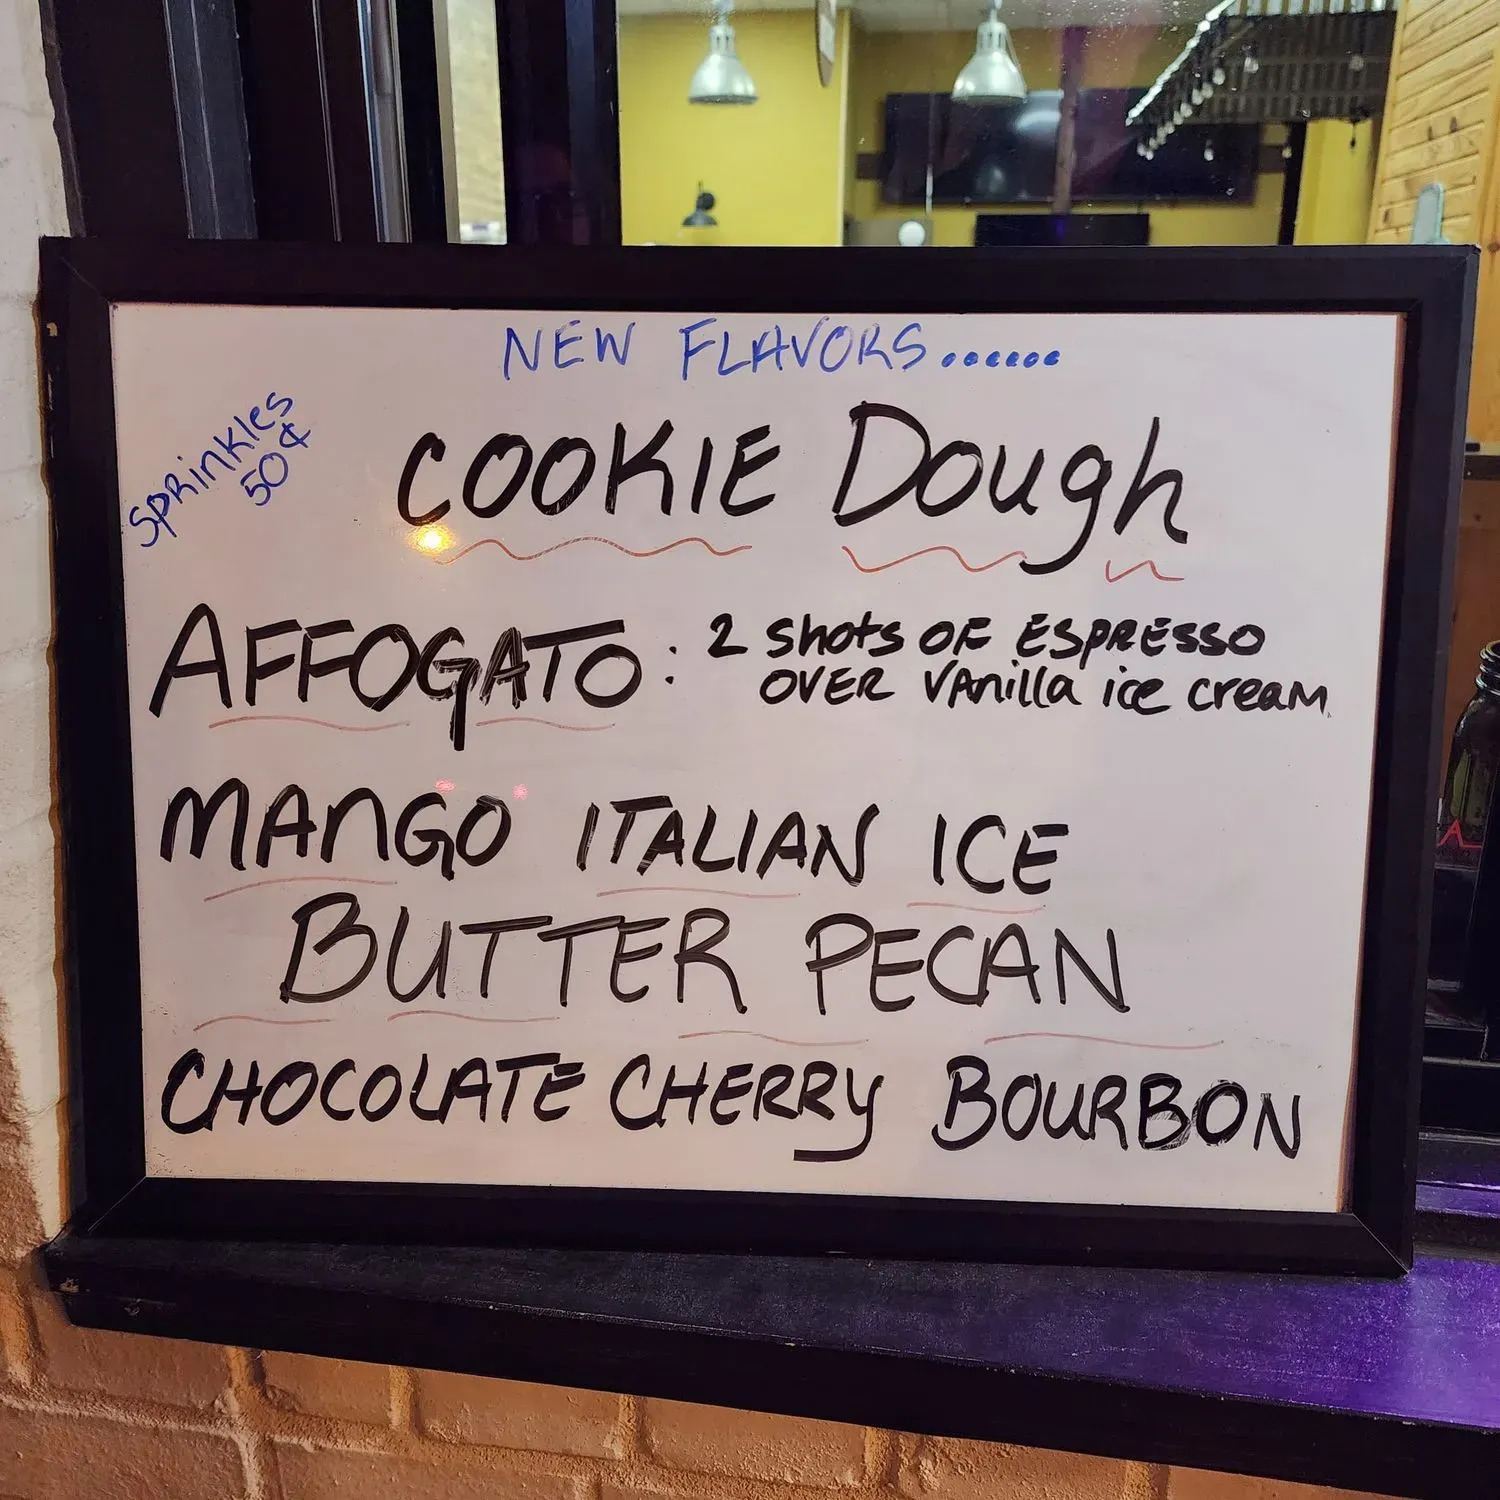 NEW FLAVORS......
Sprinkles
50¢
COOKIE Dough
AFFOGATO: 2 Shots OF ESPRESSO
OVER VAnilla ice cream
MANGO ITALIAN ICE
BUTTER PECAN
CHOCOLATE CHERRY BOURBON